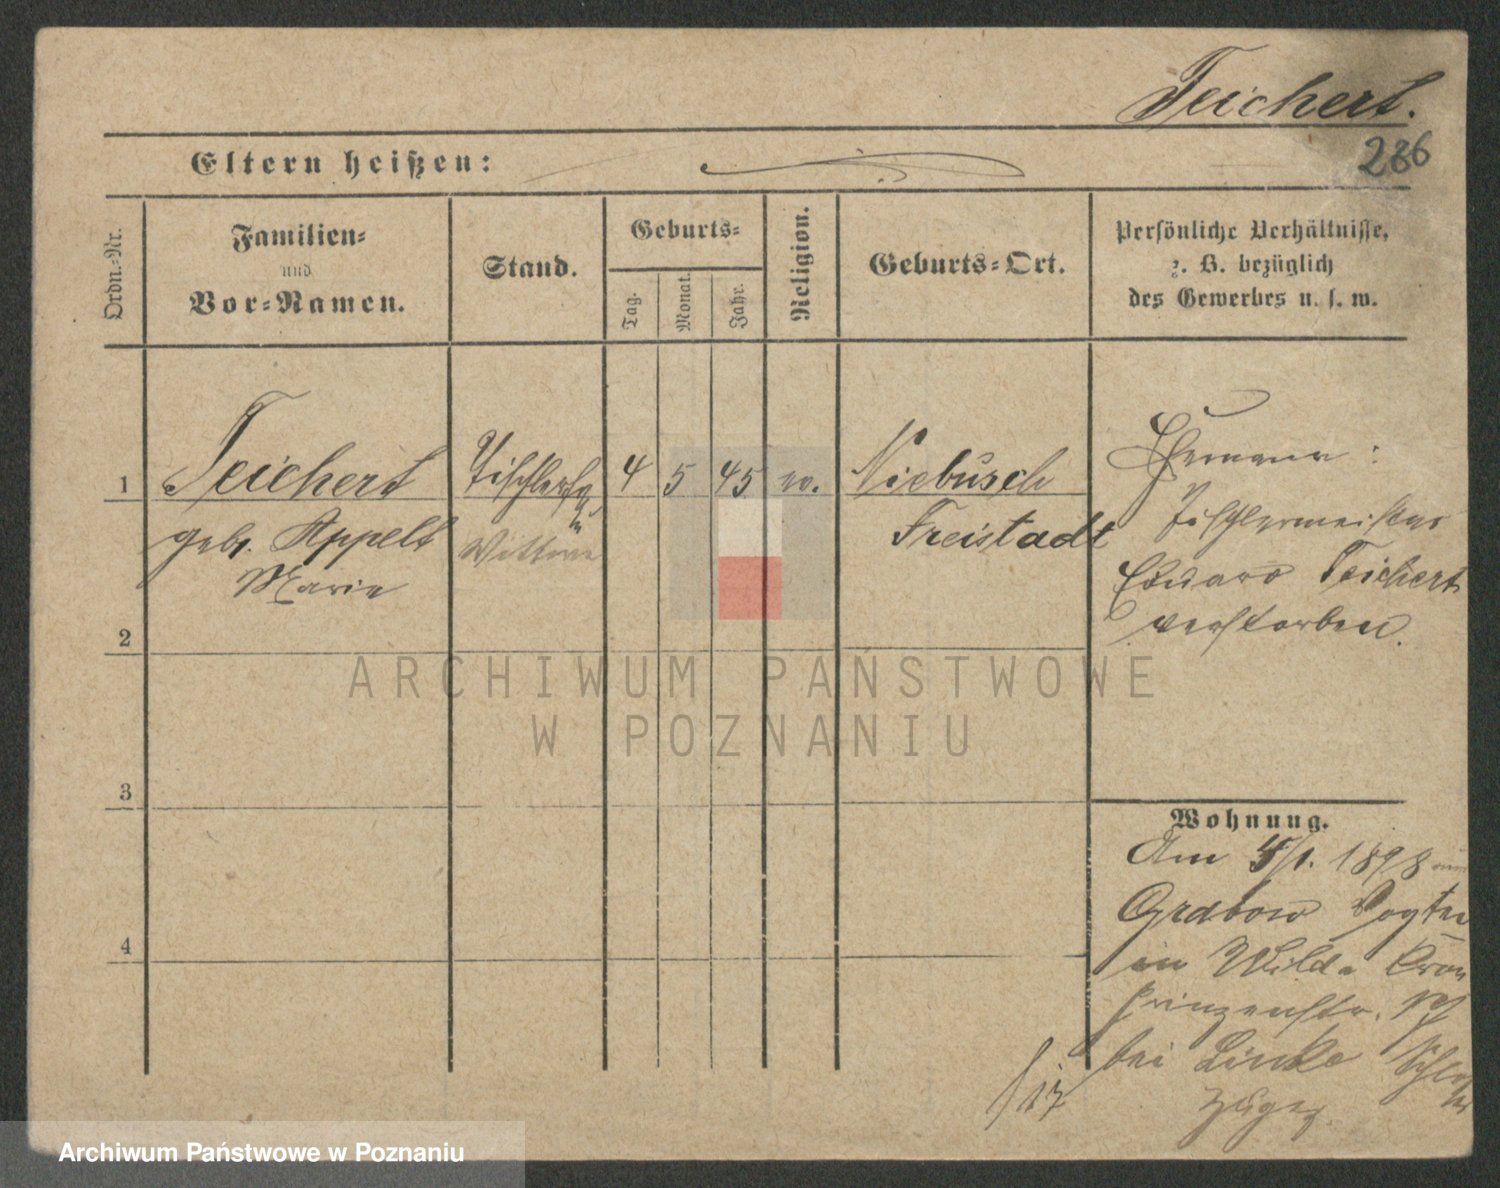 Teichert.
286
Eltern heißen:
Ordn.-Nr.
Familien-
und
Vor-Namen.
Stand.
Geburts-
Tag.
Monat.
Jahr.
Religion.
Geburts-Ort.
Persönliche Verhältnisse,
z. B. bezüglich
des Gewerbes u. s. w.
1
Teichert
geb. Appelt
Marie
Wittwe
4 5 45
Niebusch
Freistadt
Ehemann:
Tischlermeister
Eduard Teichert
verstorben.
2
3
4
Wohnung.
Am 1898
Grabow
in Wilda Cron
prinzenstr.
bei Linke
17
ARCHIWUM PAŃSTWOWE
W POZNANIU
Archiwum Państwowe w Poznaniu